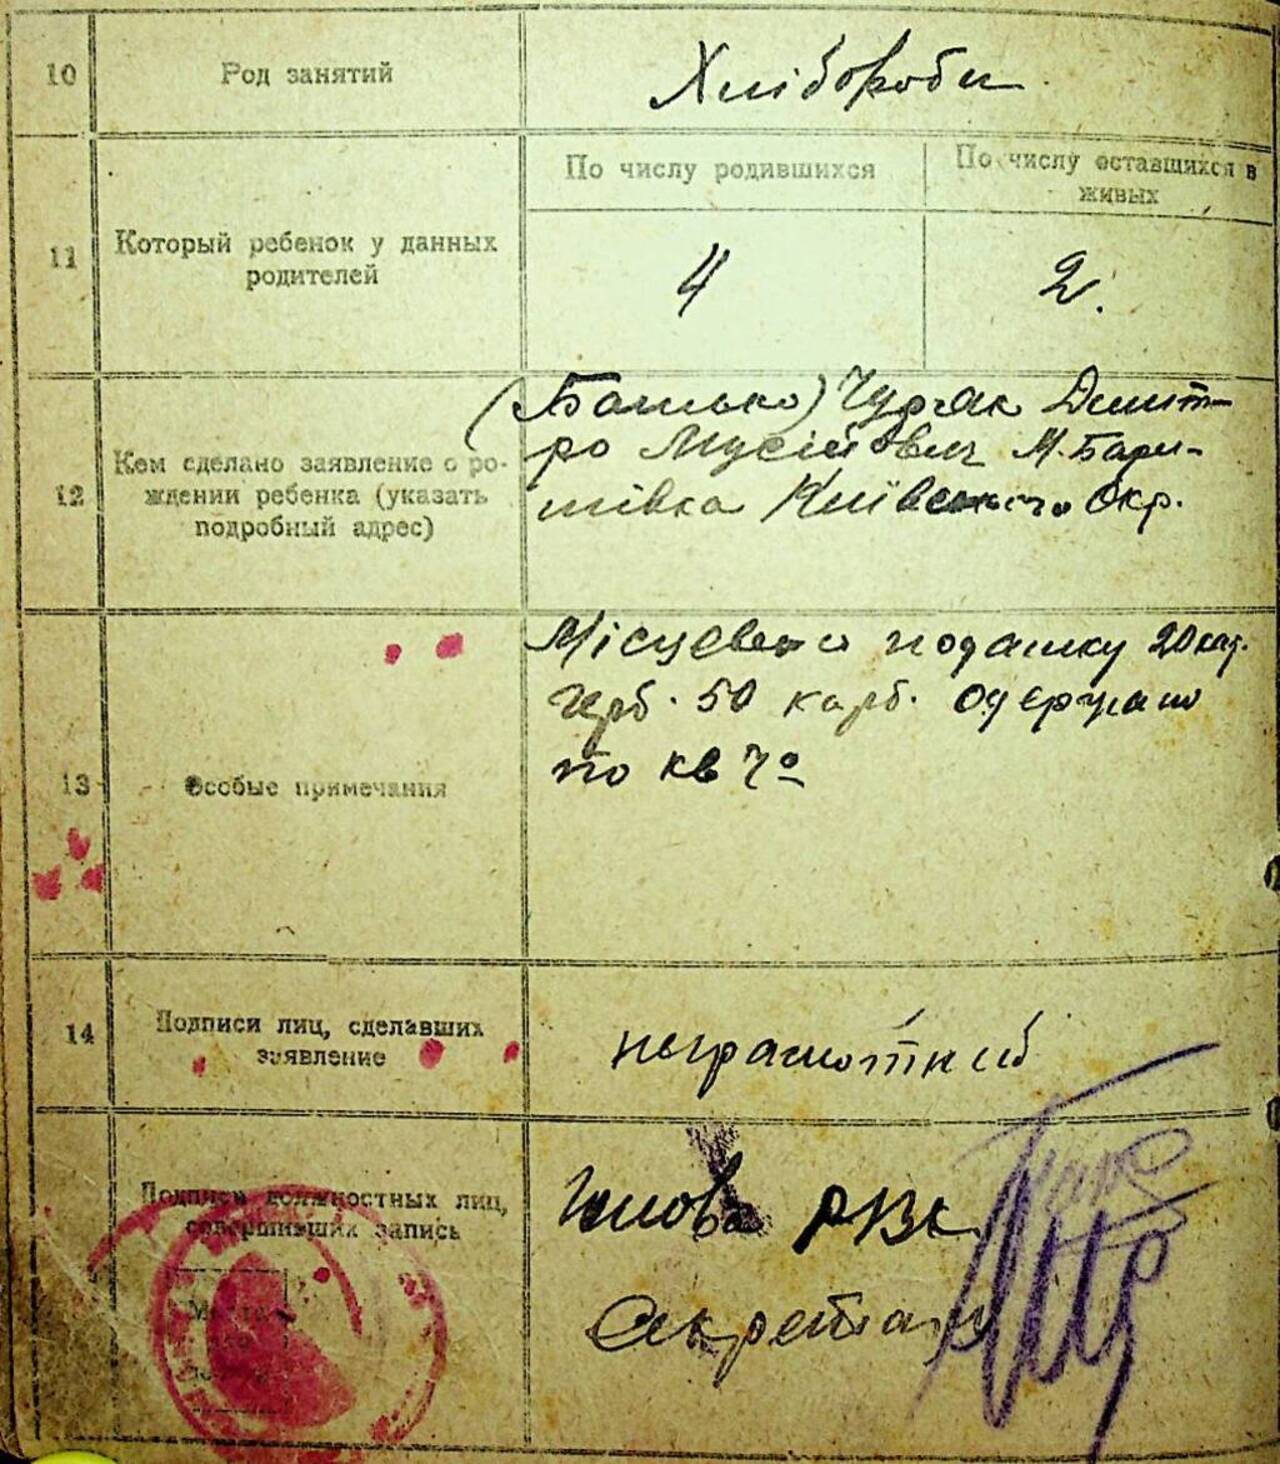 10
Род занятий
Хлібороби
11
Который ребенок у данных
родителей
По числу родившихся
По числу оставшихся в
живых
4
2.
12
Кем сделано заявление о ро-
ждении ребенка (указать
подробный адрес)
(Батько) Дмит-
ро Мусійович М. Бари-
шівка Київського Окр.
13
Особые примечания
Місцевого податку 20 кар.
герб. 50 карб. одержано
по кв
14
Подписи лиц, сделавших
заявление
неграмотний
Подписи должностных лиц,
совершивших запись
Голова РВК
Секретар